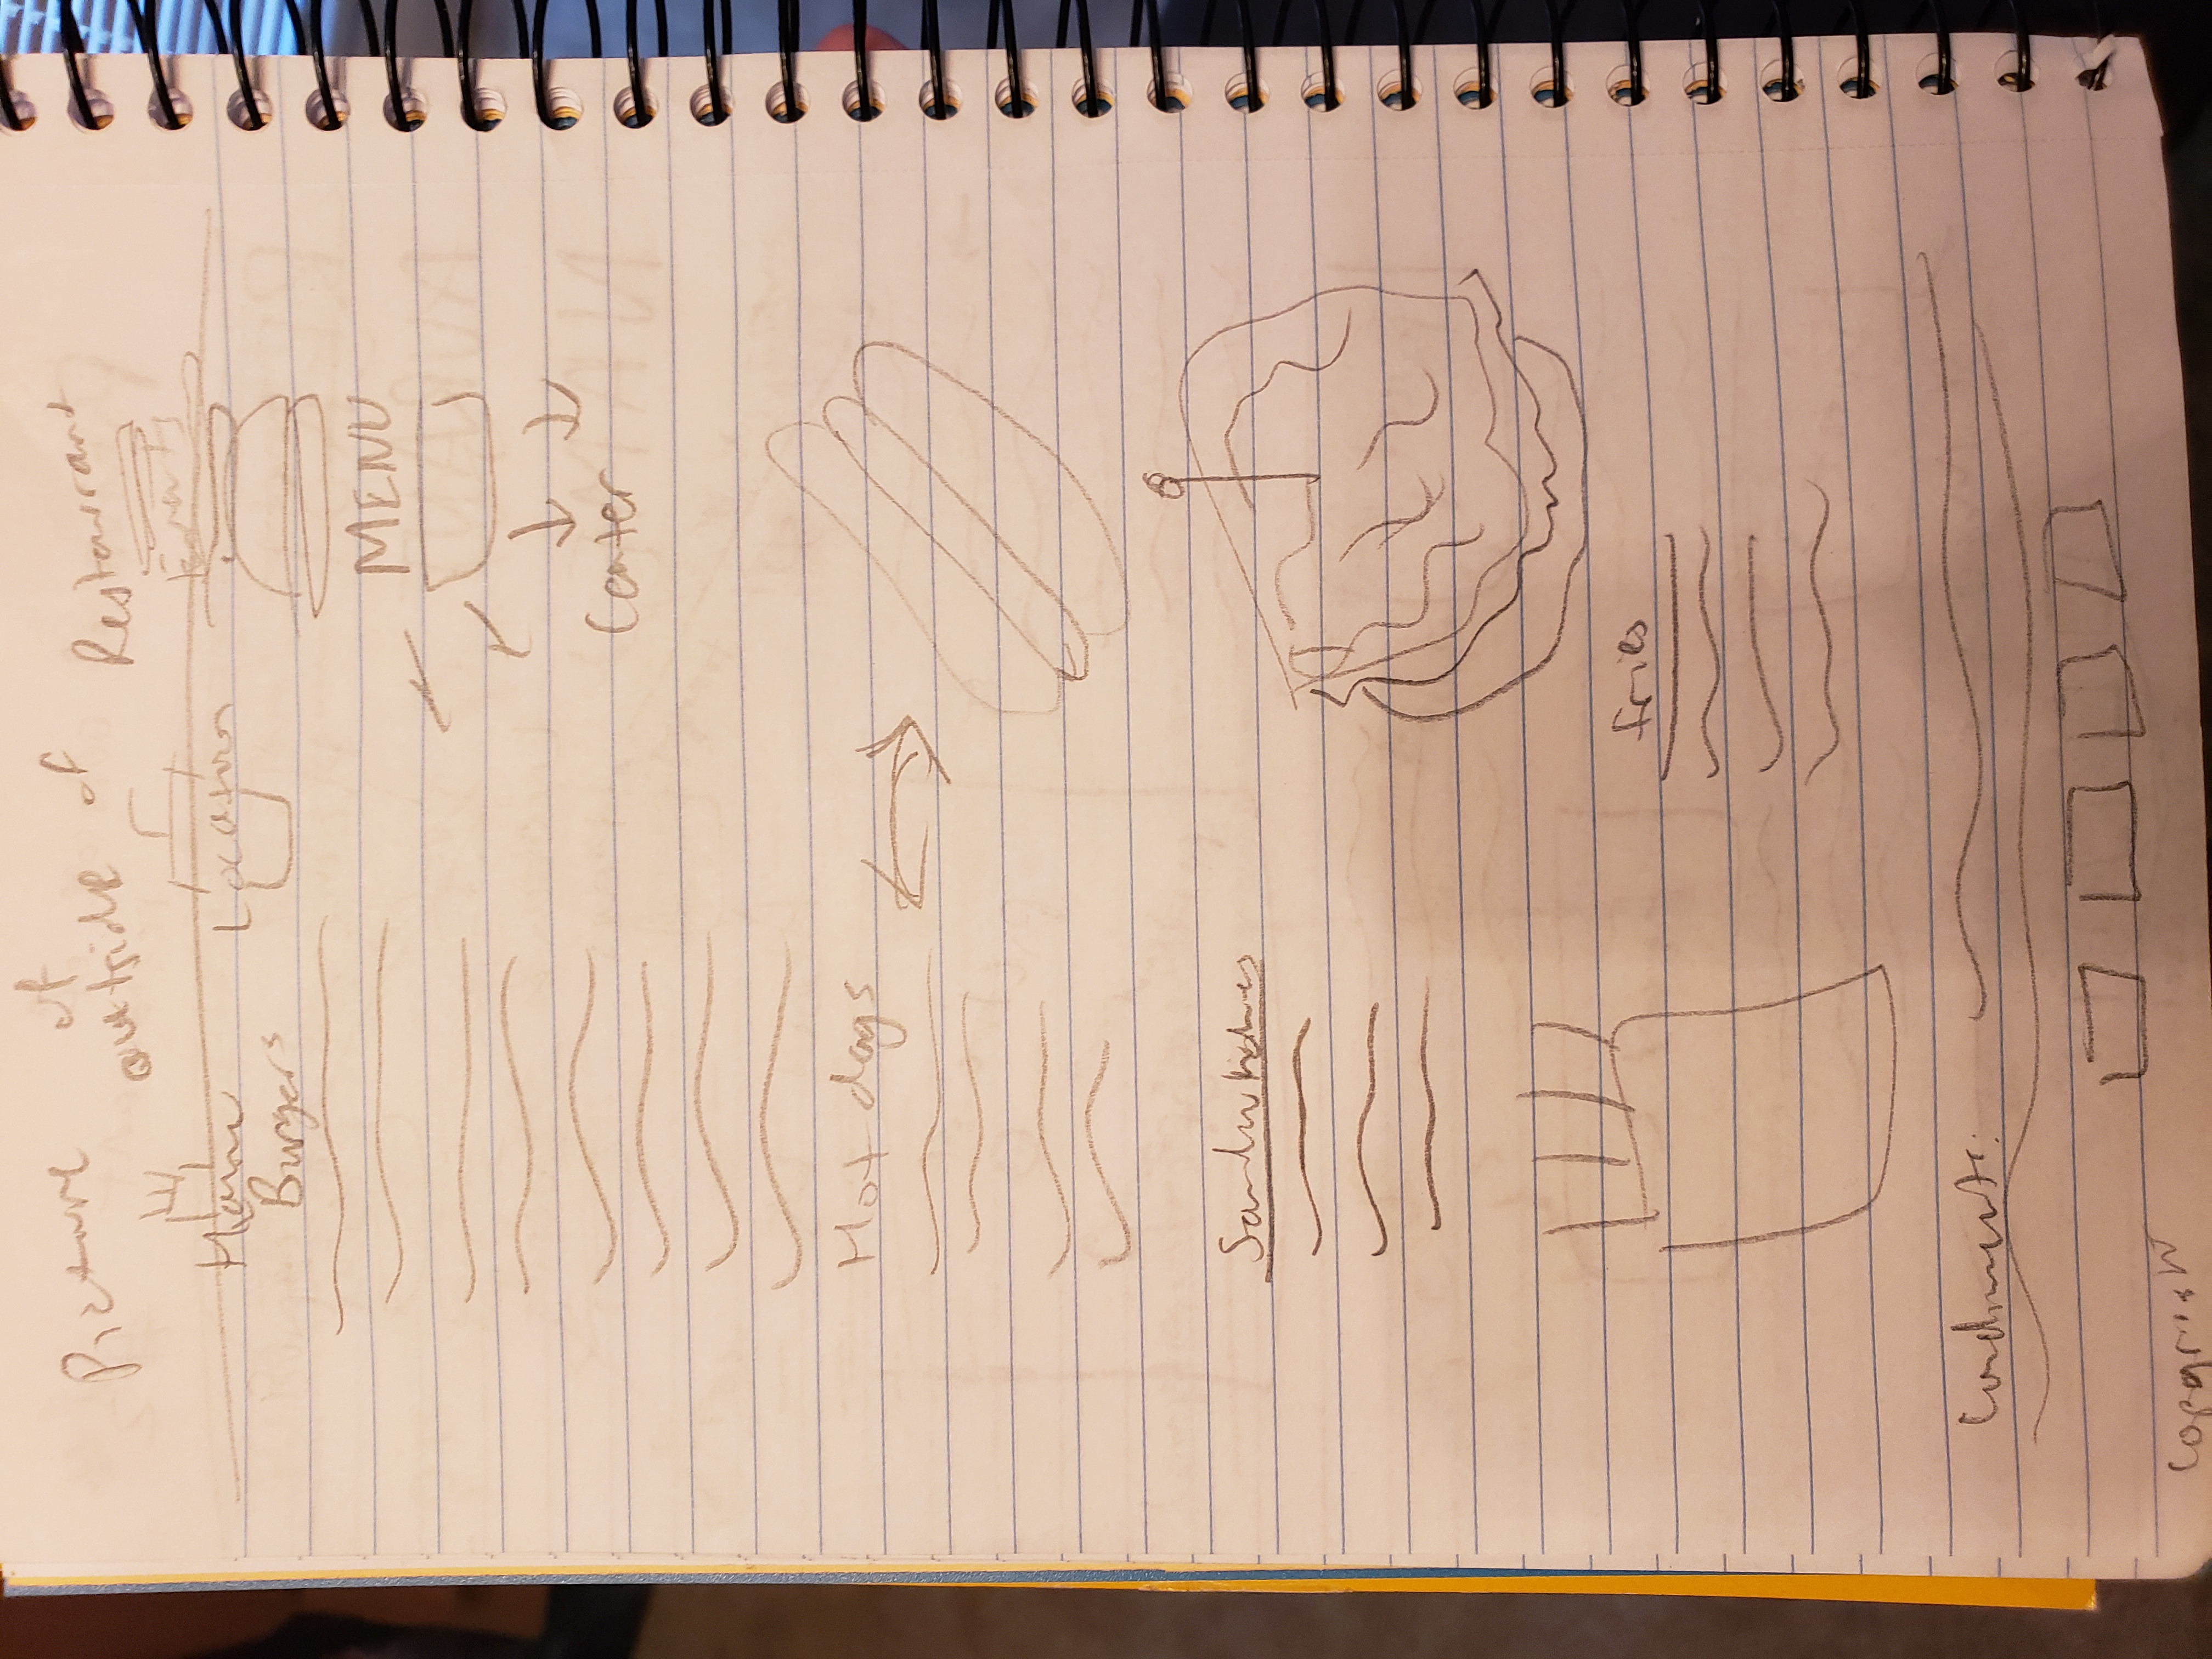 Picture of outside of Restaurant
Home Location Events
Burgers
MENU
Center
Hot dogs
Sandwiches
fries
Condiments:
Copyright